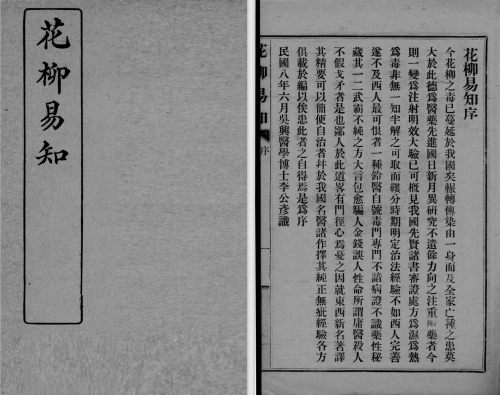 花柳易知
花柳易知序
今花柳之毒已蔓延於我國矣輾轉傳染由一身而及全家亡種之患莫
大於此德爲醫藥先進國日新月異研究不遺餘力向之注重藥者今
則一變爲注射明效大驗已可槪見我國先賢諸書審證處方爲濕爲熱
爲毒非無一知半解之可取而緩分時期明定治法經驗不如西人完善
遂不及西人最可恨者一種鈴醫自號毒門專門不諳病證不識藥性秘
藏其一二武霸不純之方大言包愈騙人金錢誤人性命所謂庸醫殺人
不假戈矛者是也鄙人於此道畧有門徑心焉憂之因就東西新名著譯
其精要可以簡便自治者幷於我國名醫諸作擇其純正無疵經驗各方
俱載於編以俟患此者之自得焉是爲序
民國八年六月吳興醫學博士李公彥識
花柳易知
序
一